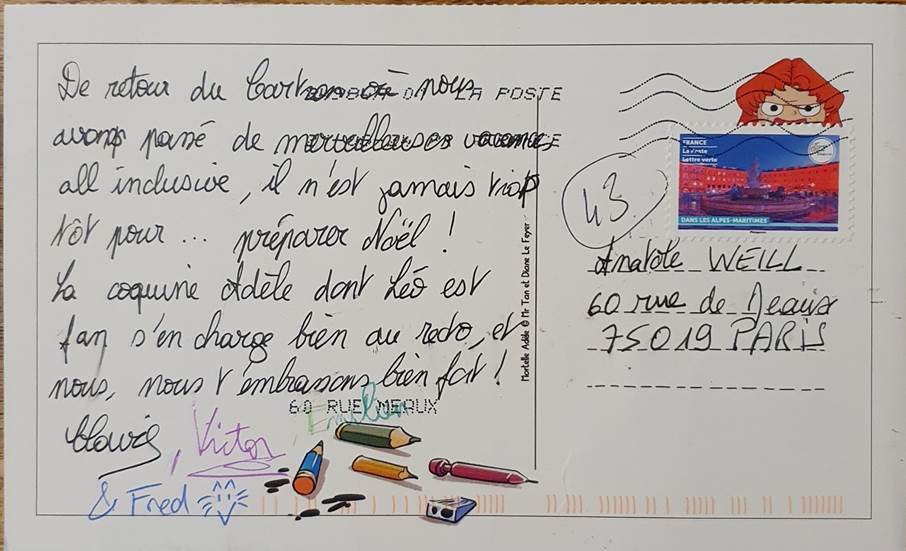 De retour du où nous
avons passé de merveilleuses vacances
all inclusive, il n'est jamais trop
tôt pour ... préparer Noël !
La coquine Adèle dont Léo est
fan s'en charge bien au recto, et
nous, nous t'embrassons bien fort !
Clovis, Victor
& Fred
LA POSTE
60 RUE MEAUX
Mortelle Adèle © Mr Tan et Diane Le Feyer
FRANCE
La Poste
Lettre verte
DANS LES ALPES-MARITIMES
43
Anatole WEILL
60 rue de Meaux
75019 PARIS